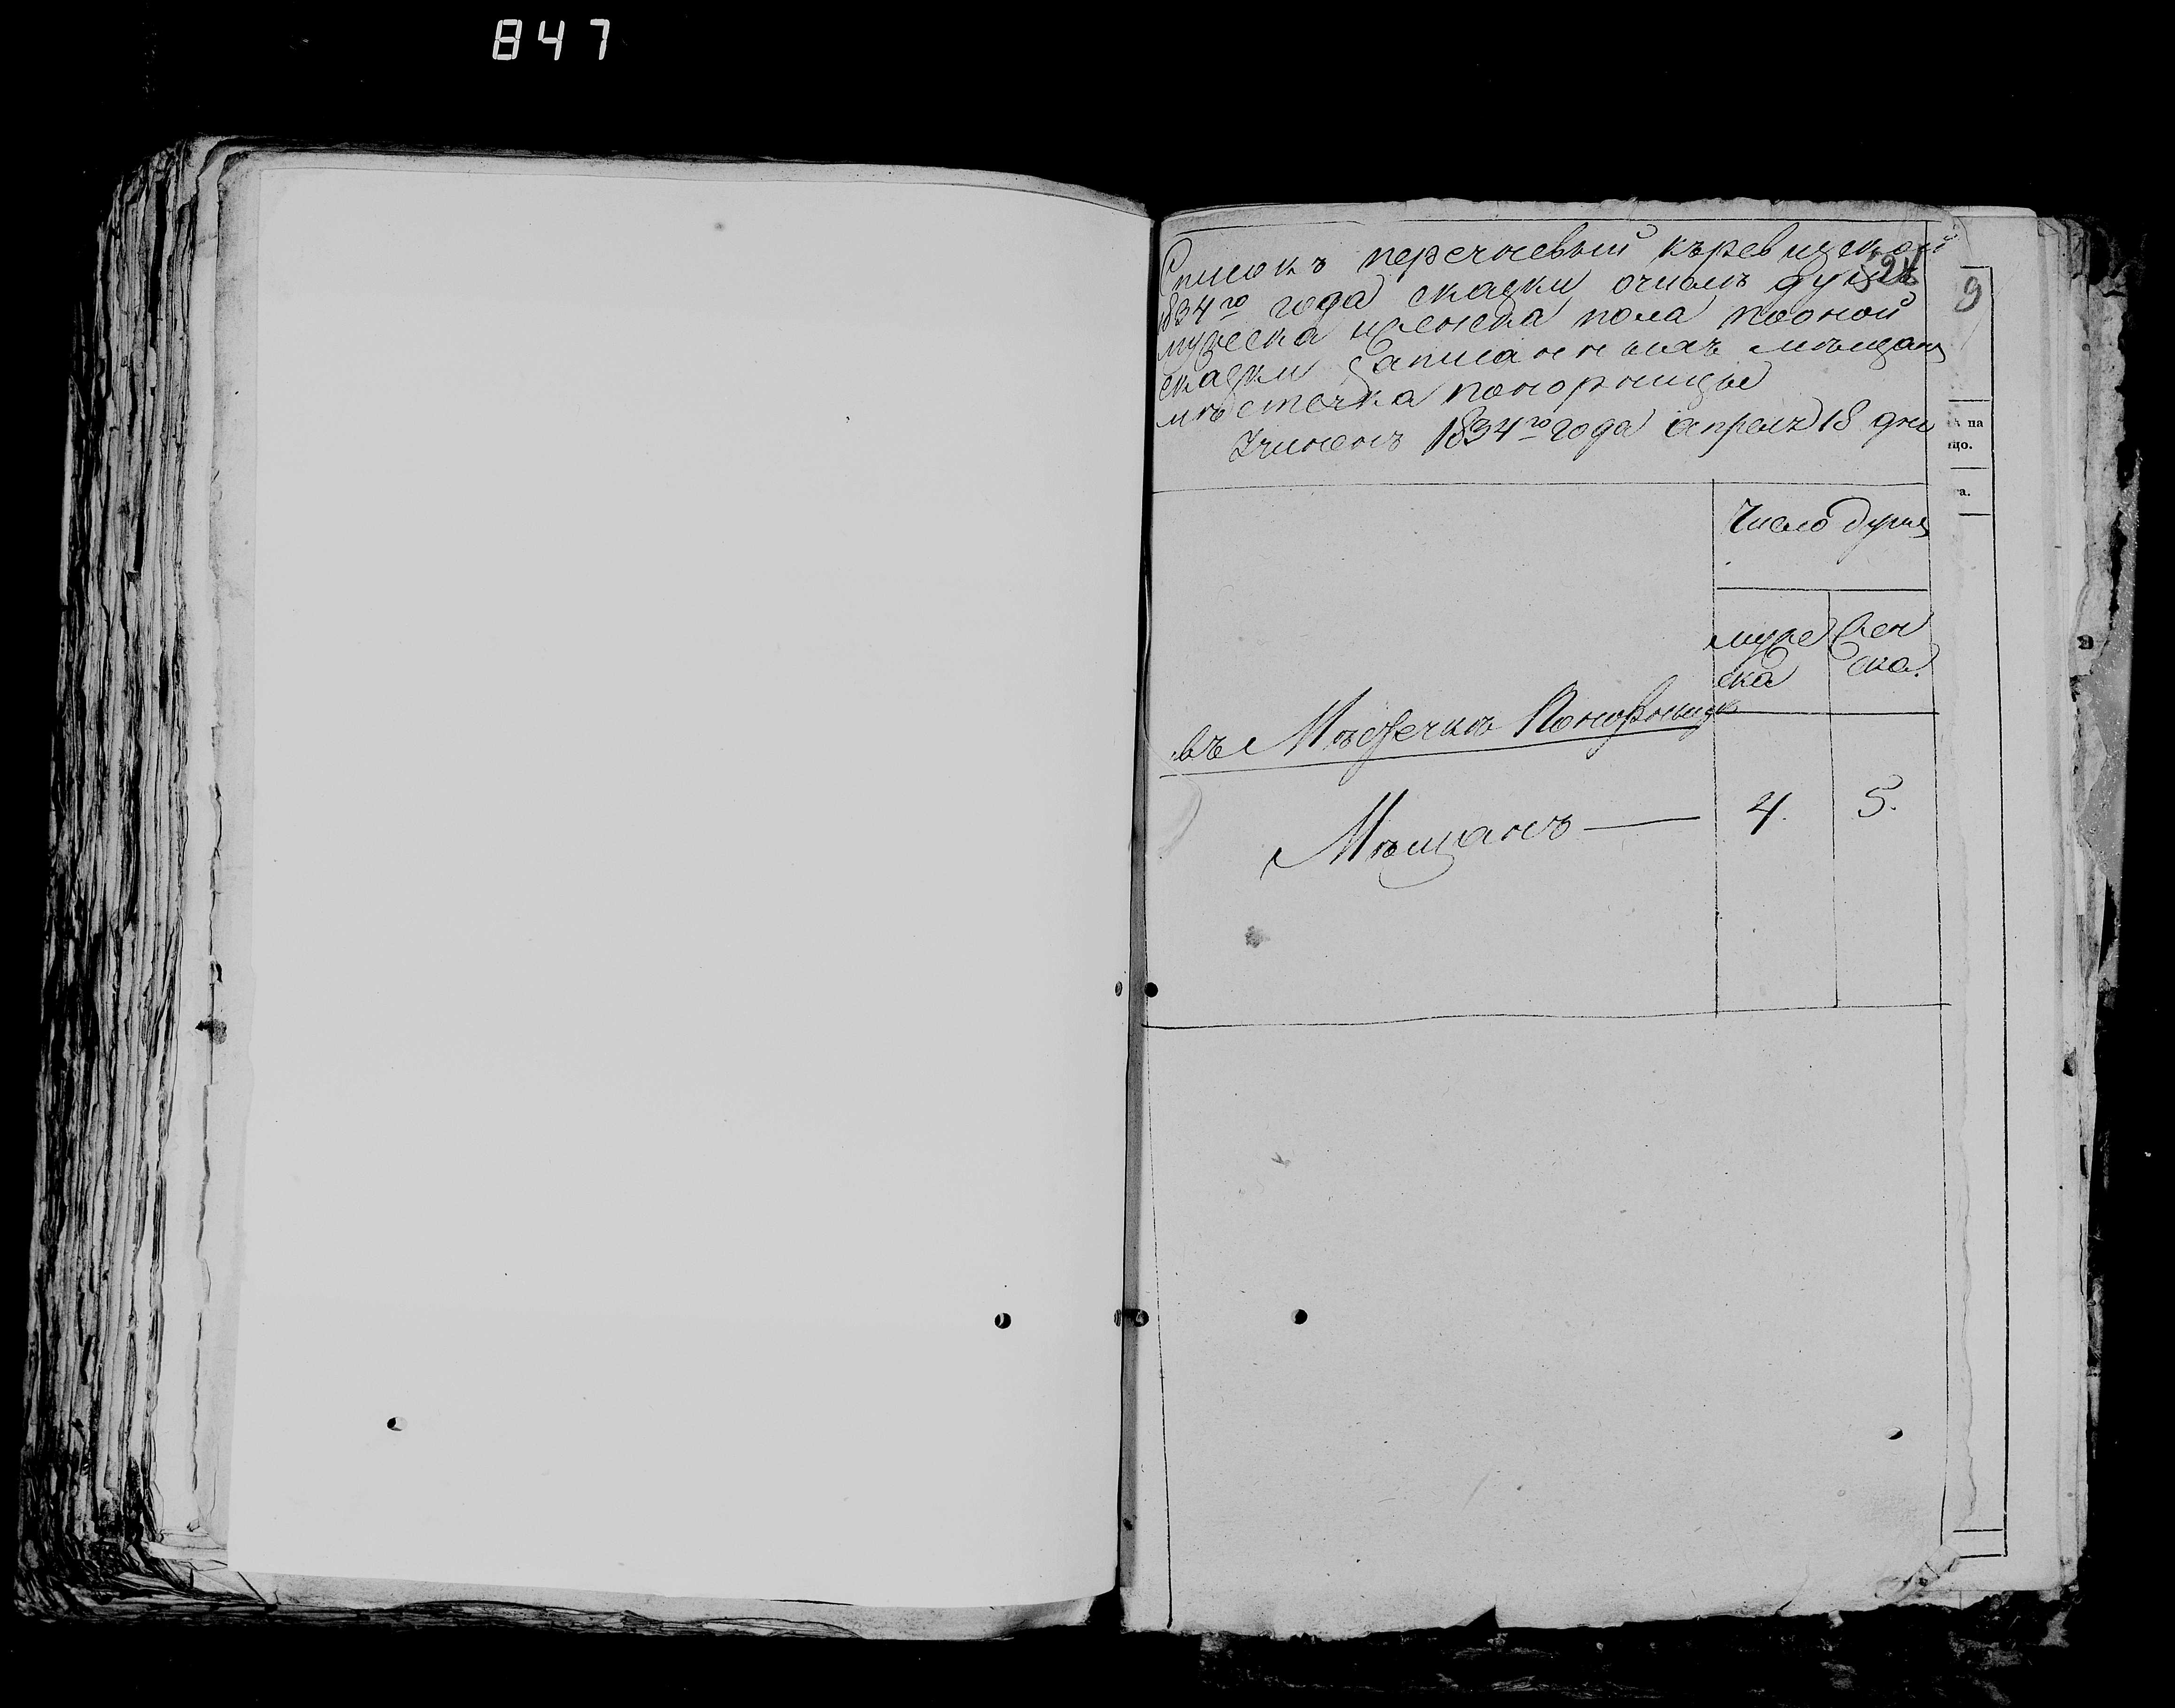 847
Списокъ перечневый къревизской
524
1834го года сказки очислъ душъ
9
мужеска иженска пола пооной
сказки Записанныхъ мѣщанъ
мѣстечка понорницы
Учиненъ 1834го года апреля 18 дня
ъ на
що.
а.
Число душъ
муже
ска
Жен
ска.
въ Мѣстечкѣ Понорницѣ
Мѣщанъ — 4. 5.